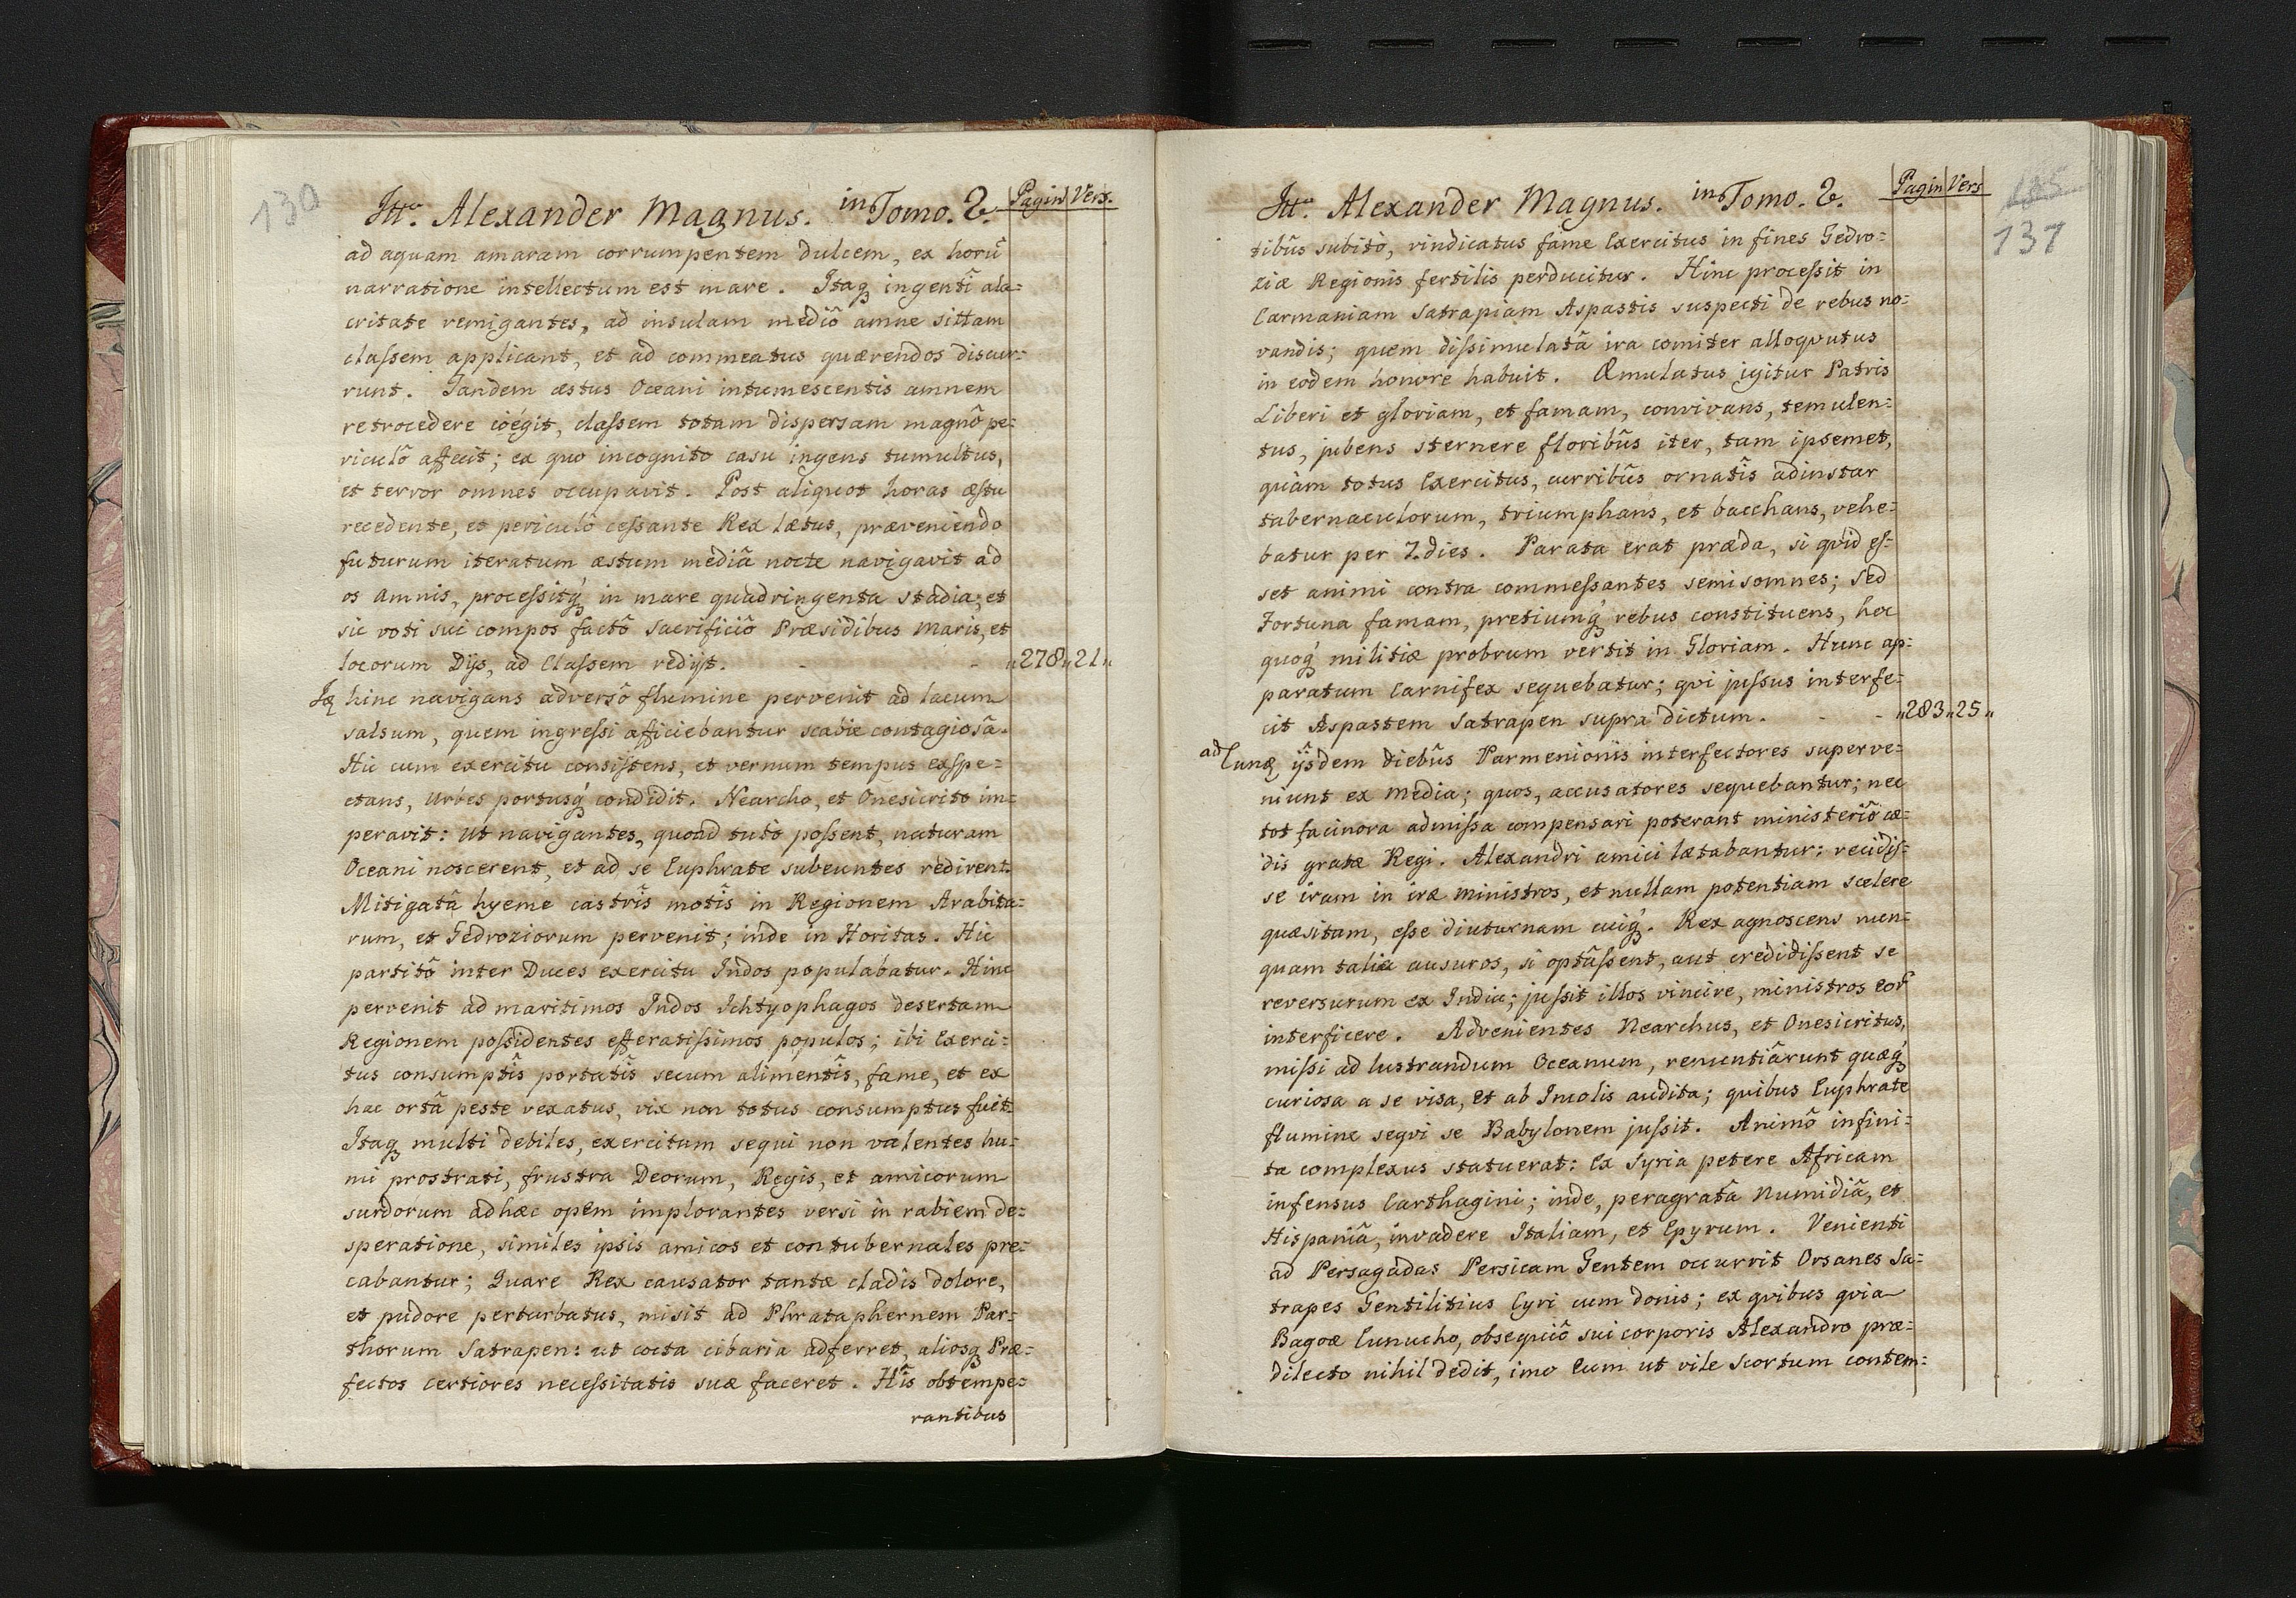 130
Itt͠o. Alexander Magnus. in Tomo. 2. Pagin Vers.
ad aquam amaram corrumpentem dulcem, ex horũ
narratione intellectum est mare. Itaq₃ ingentî ala=
critate remigantes, ad insulam mediô amne sittam
claſsem applicant, et ad commeatus quærendos discur=
runt. Tandem æstus Oceani intumescentis amnem
retrocedere coégit, claſsem totam dispersam magnô pe=
riculô affecit; ex quo incognito casu ingens tumultus,
et terror omnes occupavit. Post aliquot horas æſtu
recedente, et periculô ceſsante Rex lætus, præveniendo
futurum iteratum æstum mediâ nocte navigavit ad
os amnis, proceſsitq₃ in mare quadringenta stadia; et
sic voti sui compos factô sacrificiô Præsidibus Maris, et
locorum Dijs, ad Claſsem redijt. - - „278„21„
Jæ hinc navigans adversô flumine pervenit ad lacum
salsum, quem ingreſsi afficiebantur scabie contagiosâ.
Hic cum exercitu consiſtens, et vernum tempus exſpe=
ctans, Urbes portusq₃ condidit. Nearcho, et Onesicrito im=
peravit: Ut navigantes, quoad tutò poſsent, naturam
Oceani noscerent, et ad se Euphrate subeuntes redirent.
Mitigatâ hyeme castrîs motîs in Regionem Arabita=
rum, et Gedroziorum pervenit; inde in Horitas. Hic
partitô inter Duces exercitu Indos populabatur. Hinc
pervenit ad maritimos Indos Ichtyophagos desertam
Regionem poſsidentes efferatiſsimos populos; ibi Exerci=
tus consumptîs portatîs secum alimentîs, fame, et ex
hac ortâ peste vexatus, vix non totus consumptus fuit.
Itaq₃ multi debiles, exercitum sequi non valentes hu=
mi prostrati, frustra Deorum, Regis, et amicorum
surdorum adhæc opem implorantes versi in rabiem de=
speratione, similes ipsis amicos et contubernales pre=
cabantur; Quare Rex causator tantæ cladis dolore,
et pudore perturbatus, misit ad Phrataphernem Par=
thorum Satrapen: ut cocta cibaria adferret, aliosq₃ Præ=
fectos certiores neceſsitatis suæ faceret. Hîs obtempe=
rantibus
Itt͠o. Alexander Magnus. in Tomo. 2. Pagin Vers
137
tibûs subitò, vindicatus fame Exercitus in fines Gedro=
ziæ Regionis fertilis perducitur. Hinc proceſsit in
Carmaniam Satrapiam Aspastis suspecti de rebus no=
vandis; quem diſsimulatâ ira comiter alloqvutus
in eodem honore habuit. Æmulatus igitur Patris
Liberi et gloriam, et famam, convivans, temulen=
tus, jubens sternere floribûs iter, tam ipsemet,
quàm totus Exercitus, curribûs ornatîs adinstar
tabernaculorum, triumphans, et bacchans, vehe=
batur per 7. dies. Parata erat præda, si qvid eſ=
set animi contra commeſsantes semisomnes; sed
Fortuna famam, pretiumq₃ rebus constituens, hoc
quoq₃ militiæ probrum vertit in Gloriam. Hunc ap=
paratum Carnifex sequebatur; qvi juſsus interfe=
cit Aspastem Satrapen supra dictum. - - „283„25„
ad Lunæ ijsdem diebûs Parmenionis interfectores superve=
niunt ex Media; quos, accusatores sequebantur; nec
tot facinora admiſsa compensari poterant ministeriô cæ=
dis gratæ Regi. Alexandri amici lætabantur: recidiſ=
se iram in iræ ministros, et nullam potentiam scelere
quæsitam, eſse diuturnam cuiq₃. Rex agnoscens nun=
quam talia ausuros, si optâſsent, aut credidiſsent se
reversurum ex India; juſsit illos vincire, ministros eor̃
interficere. Advenientes Nearchus, et Onesicritus,
miſsi ad lustrandum Oceanum, renuntiârunt quæq₃
curiosa a se visa, et ab Incolis audita; quibus Euphrate
flumine seqvi se Babylonem juſsit. Animô infini=
ta complexus statuerat: ex Syria petere Africam
infensus Carthagini; inde, peragratâ Numidiâ, et
Hispaniâ, invadere Italiam, et Epyrum. Venienti
ad Persagadas Persicam Gentem occurrit Orsanes Sa=
trapes Gentilitius Cyri cum donis; ex qvibus qvia
Bagoæ Eunucho, obsequiô sui corporis Alexandro præ=
dilecto nihil dedit, imo Eum ut vile scortum contem=